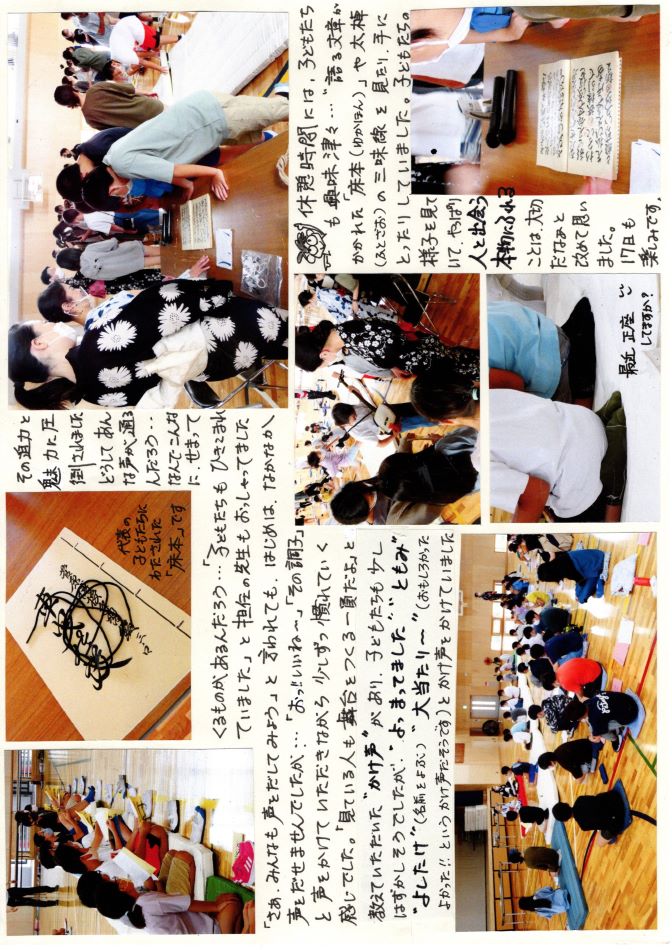 その迫力と
魅力に圧
倒されました
どうしてあん
な声が通る
んだろう・・・
なんでこんな
に、せまって
くるものがあるんだろう…「子どもたちもひきこまれ
ていました」と担任の先生もおっしゃってました
「さあ、みんなも声をだしてみよう」と言われても、はじめは、なかなか
声をだせませんでしたが…「おっ!!いいね〜」「その調子」
と声をかけていただきながら少しずつ慣れていく
感じでした。「見ている人も舞台をつくる一員だよ」と
教えていただいた"かけ声"があり、子どもたちも少し
はずかしそうでしたが、"よっ、まってました" "ともみ"
"よしたけ"(名前をよぶ)"大当たり〜"(おもしろかった
よかった!!というかけ声だそうです)とかけ声をかけていました
代表の
子どもたちに
わたされた
「床本」です
休憩時間には、子どもたち
も興味津々…"語る文章が
かかれた「床本(ゆかほん)」や太棹
(ふとざお)の三味線を見たり、手に
とったりしていました。子どもたちの
様子を見て
いて、やっぱり
人と出会う
本物にふれる
ことは大切
だなあと
改めて思い
ました。
17日も
楽しみです。
最近正座
してますか?